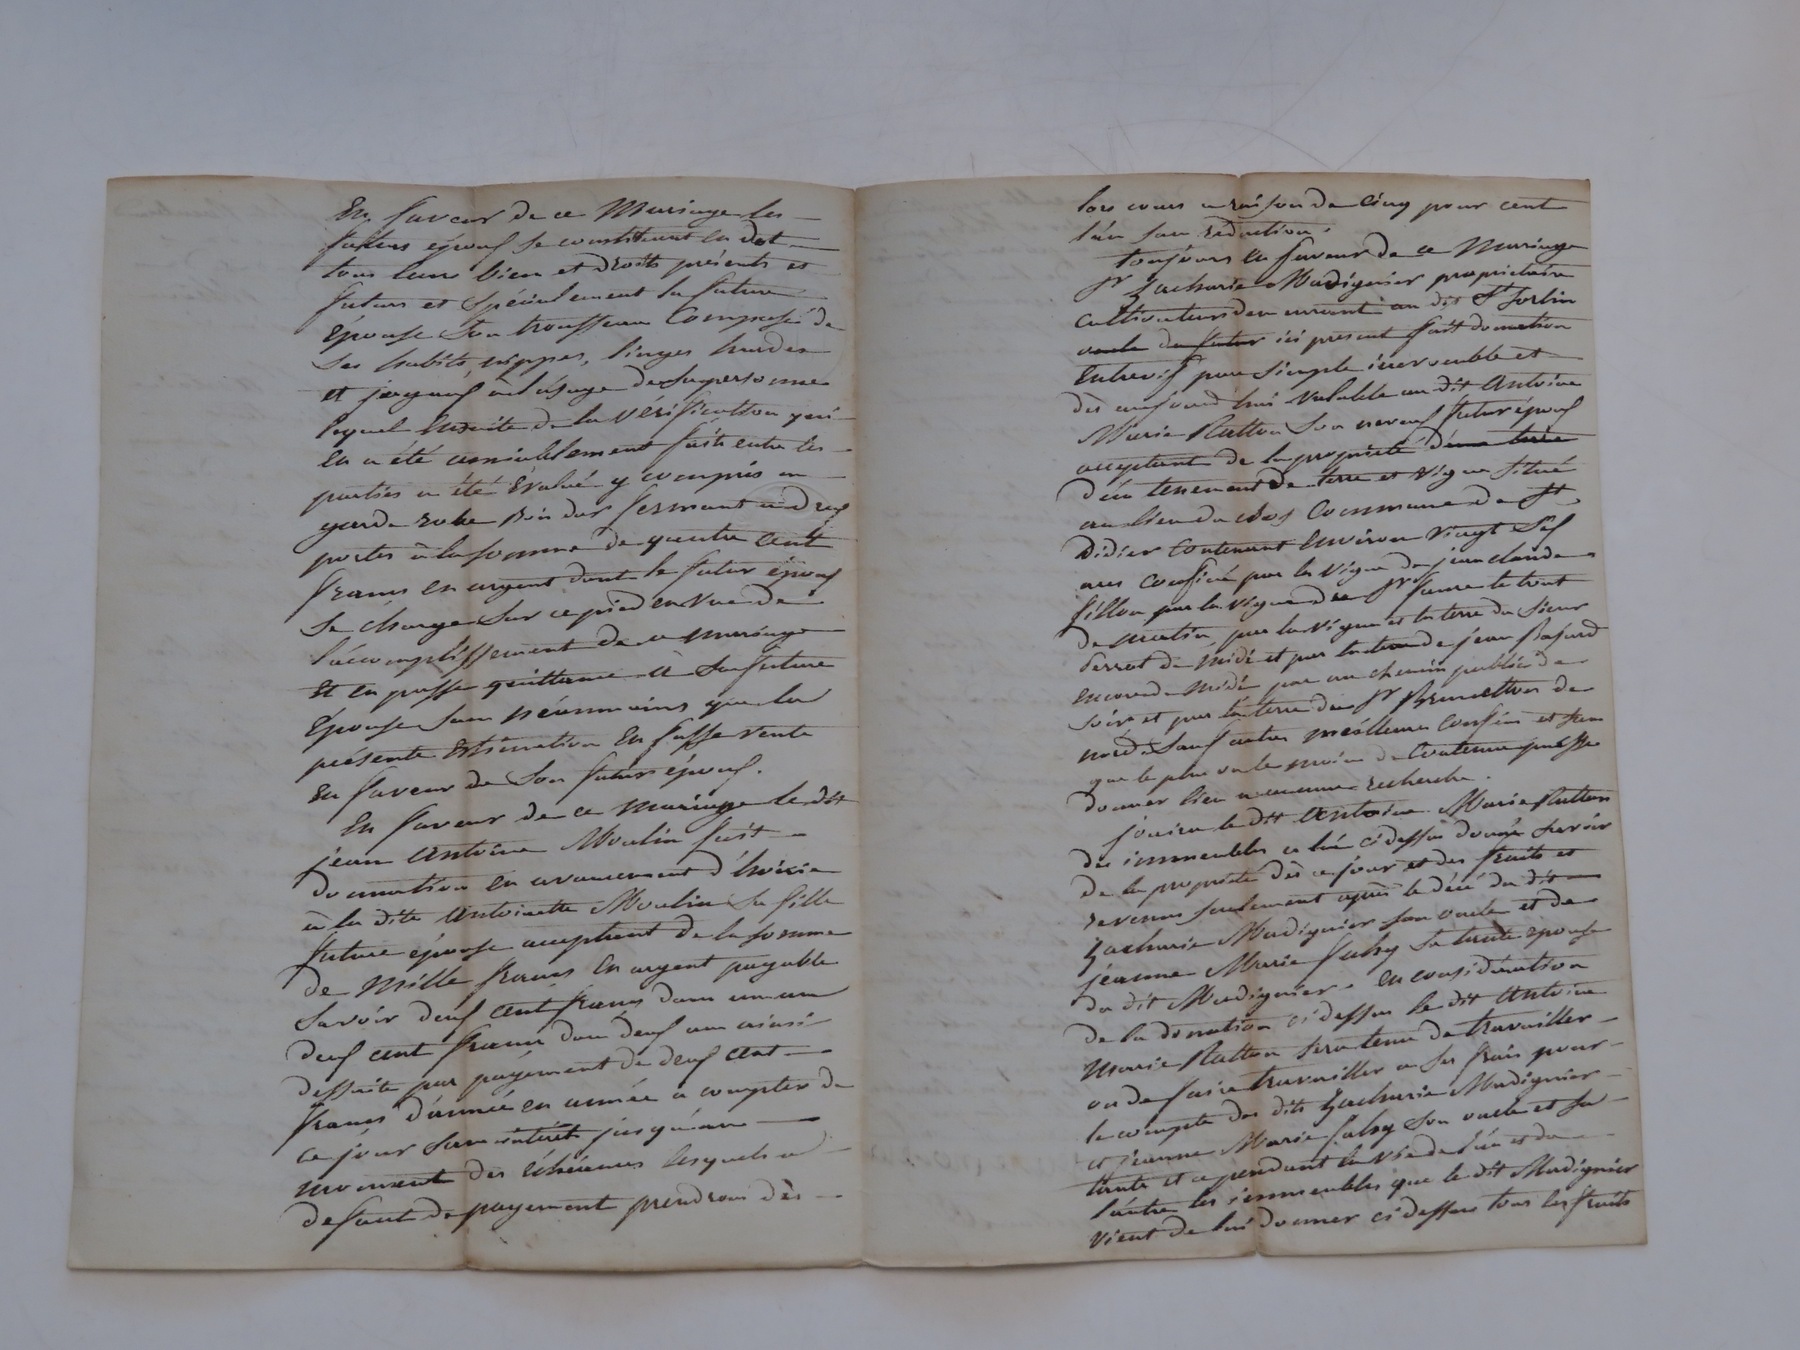 En faveur de ce Mariage les
futurs époux se constituent en dot
tous leurs biens et droits présents et
futurs et spécialement la future
Épouse son trousseau Composé de
ses habits, nippes, linges hardes
et joyaux à l'usage de sa personne
lequel ensuite de la vérification qui
en a été amiablement faite entre les
parties a été évalué y compris un
garde robe bois dur fermant a deux
portes à la somme de quatre cent
francs en argent dont le futur époux
se charge sur ce pied en vue de
l'accomplissement de ce mariage
et en passe quittance à sa future
épouse sans néanmoins que la
présente Estimation en fasse vente
en faveur de son futur époux.
En faveur de ce mariage le dit
jean Antoine Moulin fait
donation en avancement d'hoirie
à la dite Antoinette Moulin sa fille
future épouse acceptant de la somme
de Mille francs en argent payable
savoir deux cent francs dans un an
deux cent francs dans deux ans ainsi
de suite par payement de deux cent
francs d'année en année à compter de
ce jour sans intérêt jusqu'au
moment des échéances lesquels a
defaut de payement prendrons dès
lors cours a raison de cinq pour cent
l'an sans réduction.
toujours en faveur de ce Mariage
Sr Zacharie Madignier propriétaire
cultivateur demeurant au dit St Sorlin
oncle du futur ici présent fait donation
Entrevif pure simple irrévocable et
dès aujourd'hui valable au dit Antoine
Marie Ratton son neveu futur époux
acceptant de la propriété d'une terre
d'un tenement de terre et vigne situé
au lieu du Commune de St
Didier Contenant environ vingt six
ares confiné par les vigne de jean claude
fillon par la vigne de Sr le tout
de matin, par la vigne et la terre du Sieur
Perrot de midi et par la terre de jean
encore de midi par un chemin public de
soir et par la terre du Sr de
nord. Sauf autres meilleurs Confins et sans
que le plus ou le moins de Contenu puisse
donner lieu a aucune recherche.
jouira le dit Antoine Marie Ratton
des immeubles a lui ci dessus donné savoir
de la propriété dès ce jour et des fruits et
revenus seulement après le décé du dit
Zacharie Madignier son oncle et de
jeanne Marie sa tante épouse
du dit Madignier. en considération
de la donation ci dessus le dit Antoine
Marie Ratton sera tenu de travailler
ou de faire travailler a ses frais pour
le compte des dits Zacharie Madignier
et jeanne Marie son oncle et sa
tante et ce pendant la vie de l'un et de
l'autre les immeubles que le dit Madignier
vient de lui donner ci dessus tous les fruits